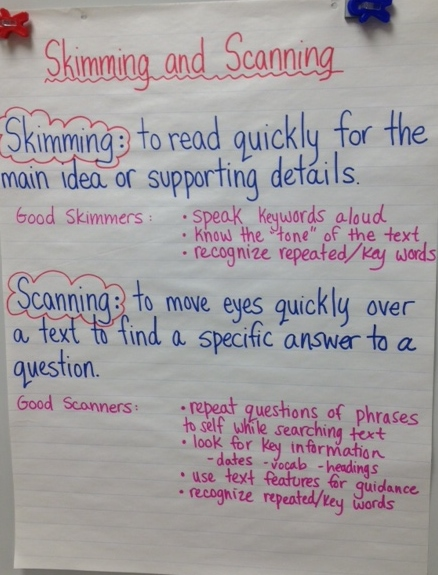 Skimming and Scanning
Skimming: to read quickly for the
main idea or supporting details.
Good Skimmers: • speak keywords aloud
• know the "tone" of the text
• recognize repeated/key words
Scanning: to move eyes quickly over
a text to find a specific answer to a
question.
Good Scanners: • repeat questions of phrases
to self while searching text
• look for key information
- dates - vocab - headings
• use text features for guidance
• recognize repeated/key words